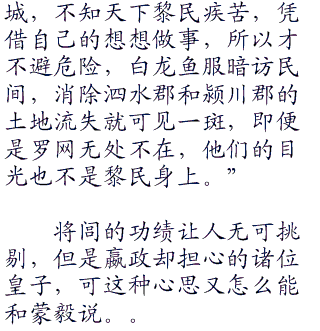 城，不知天下黎民疾苦，凭
借自己的想想做事，所以才
不避危险，白龙鱼服暗访民
间，消除泗水郡和颍川郡的
土地流失就可见一斑，即便
是罗网无处不在，他们的目
光也不是黎民身上。”
将闾的功绩让人无可挑
剔，但是嬴政却担心的诸位
皇子，可这种心思又怎么能
和蒙毅说。。